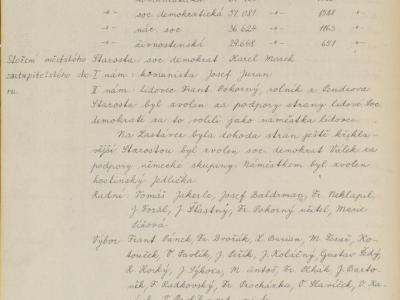 -"- soc demokratická 37.081 -"- 1588 -"-
-"- nár. soc 36.624 -"- 1163 -"-
-"- živnostenská 29.648 -"- 651 -"-
Složení městského Starosta soc demokrat Karel Marek
zastupitelského sbo I nám. komunista Josef Juran
ru II nám lidovec Frant. Pokorný, rolník z Budkova
Starosta byl zvolen za podpory strany lidové. Soc
demokrati za to volili jako náměstka lidovce.
Na Zastávce byla dohoda stran ještě křikla-
vější Starostou byl zvolen soc demokrat Válek za
podpory německé skupiny. Náměstkem byl zvolen
hostinský Jedlička
Radní: Tomáš Jakerle, Josef Baldrman, Fr. Neklapil,
J Foral, J Šťastný, Fr. Pokorný učitel, Marie
Výbor Frant. Pánek, Fr. Dvořák, L. Burian, M
V Pavlík, J J Koláčný, Gustav
R. J Sýkora, M. Antoš, Fr. J Barto-
Radkovský, Fr. Procházka, V. Slavíček, V. Ka-